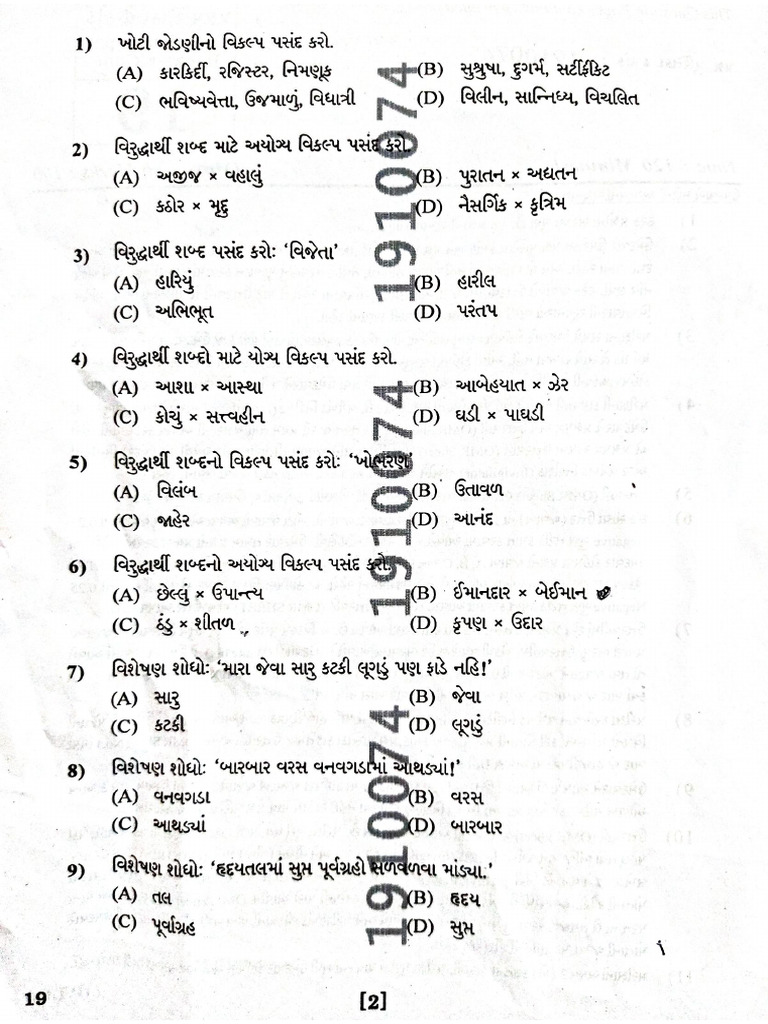 1) ખોટી જોડણીનો વિકલ્પ પસંદ કરો.
(A) કારકિર્દી, રજિસ્ટર, નિમણૂક (B) સુશ્રુષા, દુગર્મ, સર્ટીફીકેટ
(C) ભવિષ્યવેત્તા, ઉજમાળું, વિધાત્રી (D) વિલીન, સાન્નિધ્ય, વિચલિત
2) વિરુદ્ધાર્થી શબ્દ માટે અયોગ્ય વિકલ્પ પસંદ કરો.
(A) અજીજ × વહાલું (B) પુરાતન × અદ્યતન
(C) કઠોર × મૃદુ (D) નૈસર્ગિક × કૃત્રિમ
3) વિરુદ્ધાર્થી શબ્દ પસંદ કરો: ‘વિજેતા’
(A) હારિયું (B) હારીલ
(C) અભિભૂત (D) પરંતપ
4) વિરુદ્ધાર્થી શબ્દો માટે યોગ્ય વિકલ્પ પસંદ કરો.
(A) આશા × આસ્થા (B) આબેહયાત × ઝેર
(C) કોચું × સત્ત્વહીન (D) ઘડી × પાઘડી
5) વિરુદ્ધાર્થી શબ્દનો વિકલ્પ પસંદ કરો: ‘ખોભરણ’
(A) વિલંબ (B) ઉતાવળ
(C) જાહેર (D) આનંદ
6) વિરુદ્ધાર્થી શબ્દનો અયોગ્ય વિકલ્પ પસંદ કરો.
(A) છેલ્લું × ઉપાન્ત્ય (B) ઈમાનદાર × બેઈમાન
(C) ઠંડુ × શીતળ (D) કૃપણ × ઉદાર
7) વિશેષણ શોધો: ‘મારા જેવા સારુ કટકી લૂગડું પણ ફાડે નહિ!’
(A) સારુ (B) જેવા
(C) કટકી (D) લૂગડું
8) વિશેષણ શોધો: ‘બારબાર વરસ વનવગડામાં આથડ્યાં!’
(A) વનવગડા (B) વરસ
(C) આથડ્યાં (D) બારબાર
9) વિશેષણ શોધો: ‘હૃદયતલમાં સુપ્ત પૂર્વગ્રહો સળવળવા માંડ્યા.’
(A) તલ (B) હૃદય
(C) પૂર્વાગ્રહ (D) સુપ્ત
1910074
1910074
1910074
19 [2]